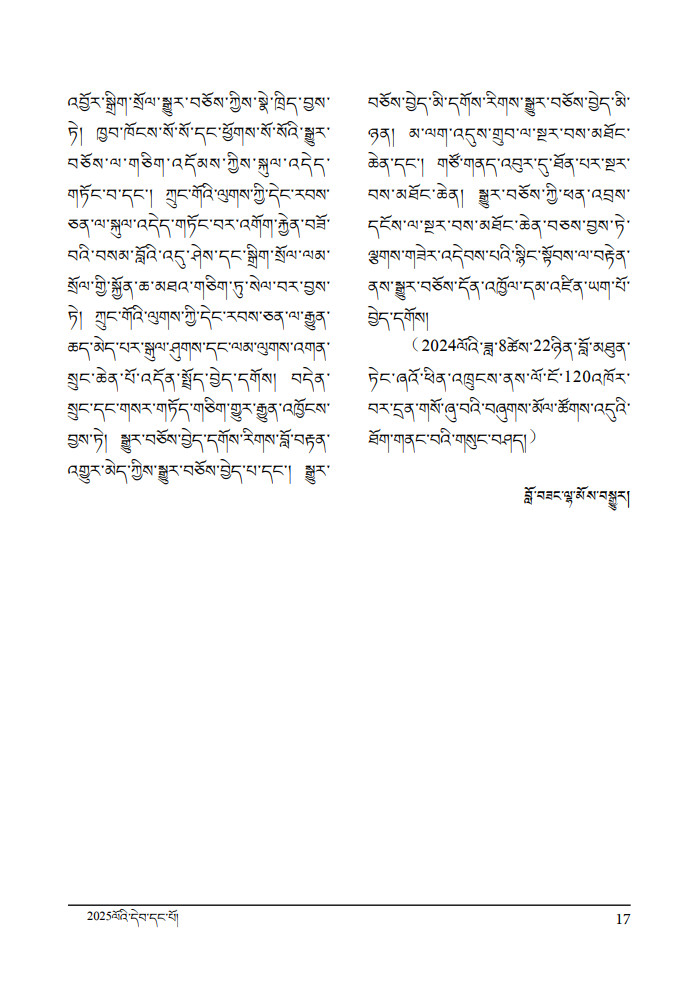 འབྱོར་སྒྲིག་སྲོལ་སྒྱུར་བཅོས་ཀྱིས་སྣེ་ཁྲིད་བྱས་
ཏེ། ཁྱབ་ཁོངས་སོ་སོ་དང་ཕྱོགས་སོ་སོའི་སྒྱུར་
བཅོས་ལ་གཅིག་འདོམས་ཀྱིས་སྐུལ་འདེད་
གཏོང་བ་དང་། ཀྲུང་གོའི་ལུགས་ཀྱི་དེང་རབས་
ཅན་ལ་སྐུལ་འདེད་གཏོང་བར་འགོག་རྐྱེན་བཟོ་
བའི་བསམ་བློའི་འདུ་ཤེས་དང་སྒྲིག་སྲོལ་ལམ་
སྲོལ་གྱི་སྐྱོན་ཆ་མཐའ་གཅིག་ཏུ་སེལ་བར་བྱས་
ཏེ། ཀྲུང་གོའི་ལུགས་ཀྱི་དེང་རབས་ཅན་ལ་རྒྱུན་
ཆད་མེད་པར་སྒུལ་ཤུགས་དང་ལམ་ལུགས་འགན་
སྲུང་ཆེན་པོ་འདོན་སྤྲོད་བྱེད་དགོས། བདེན་
སྲུང་དང་གསར་གཏོད་གཅིག་གྱུར་རྒྱུན་འཁྱོངས་
བྱས་ཏེ། སྒྱུར་བཅོས་བྱེད་དགོས་རིགས་བློ་བརྟན་
འགྱུར་མེད་ཀྱིས་སྒྱུར་བཅོས་བྱེད་པ་དང་། སྒྱུར་
བཅོས་བྱེད་མི་དགོས་རིགས་སྒྱུར་བཅོས་བྱེད་མི་
ཉན། མ་ལག་འདུས་གྲུབ་ལ་སྔར་བས་མཐོང་
ཆེན་དང་། གཙོ་གནད་འབུར་དུ་ཐོན་པར་སྔར་
བས་མཐོང་ཆེན། སྒྱུར་བཅོས་ཀྱི་ཕན་འབྲས་
དངོས་ལ་སྔར་བས་མཐོང་ཆེན་བཅས་བྱས་ཏེ་
ལྕགས་གཟེར་འདེབས་པའི་སྙིང་སྟོབས་ལ་བརྟེན་
ནས་སྒྱུར་བཅོས་དོན་འཁྱོལ་དམ་འཛིན་ཡག་པོ་
བྱེད་དགོས།
（2024ལོའི་ཟླ་8ཚེས་22ཉིན་བློ་མཐུན་
ཏེང་ཞའོ་ཕིན་འཁྲུངས་ནས་ལོ་ངོ་120འཁོར་
བར་དྲན་གསོ་ཞུ་བའི་བཞུགས་མོལ་ཚོགས་འདུའི་
ཐོག་གནང་བའི་གསུང་བཤད།）
བློ་བཟང་ལྷ་མོས་བསྒྱུར།
2025ལོའི་དེབ་དང་པོ། 17